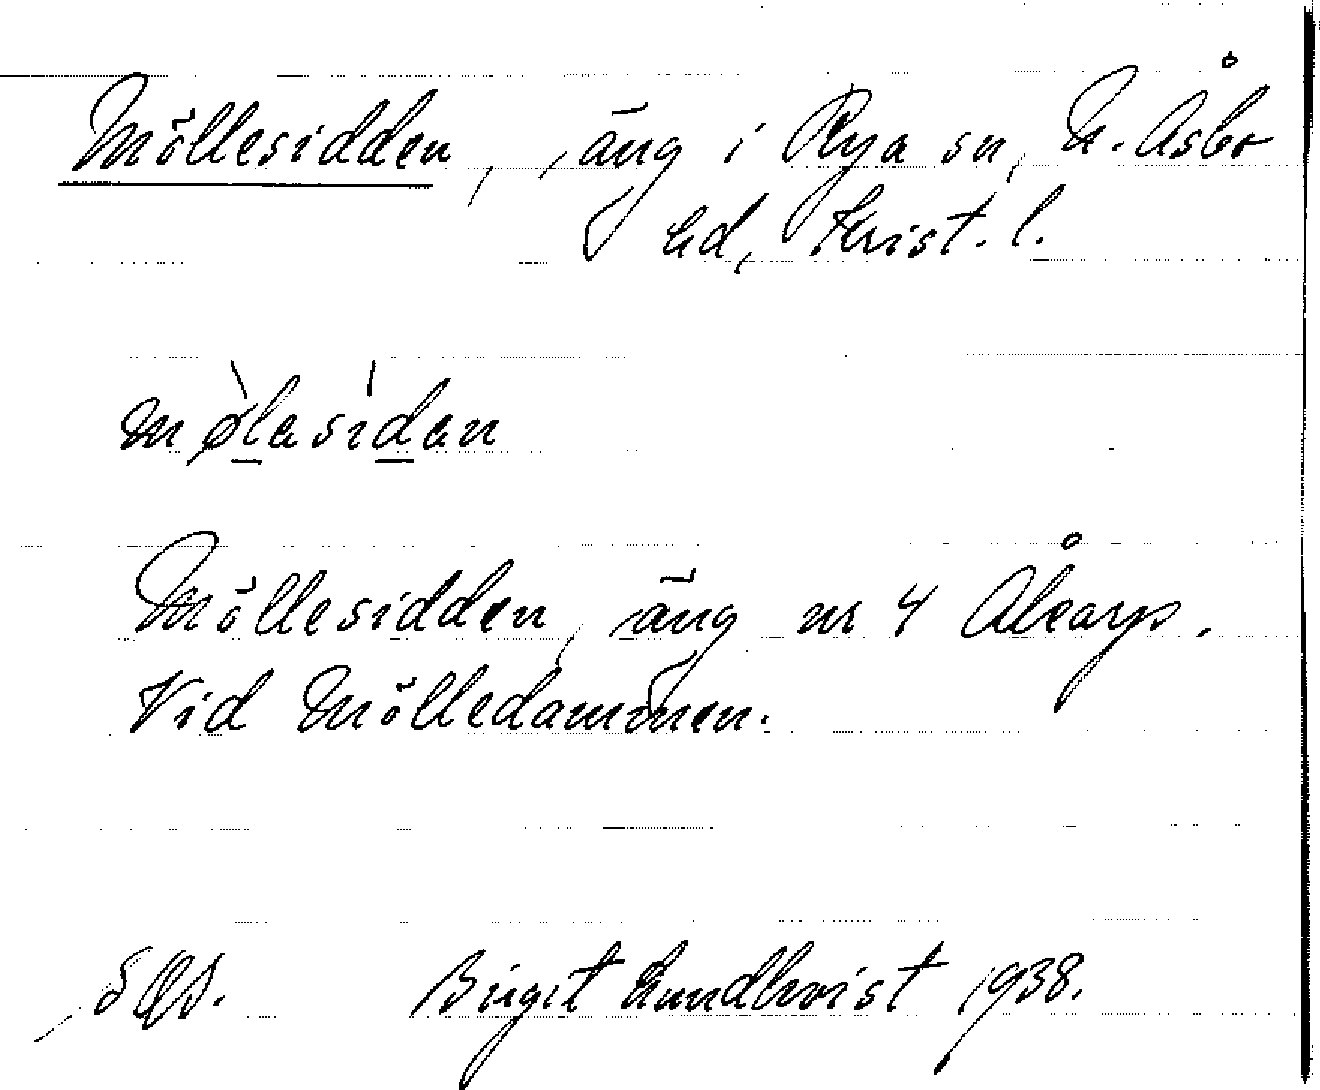 Möllesidden, äng i Rya sn, N. Åsbo
hd, Krist. l.
mølasidan
Möllesidden, äng nr 4
Vid Mölledammen.
Birgit Lundkvist 1938.